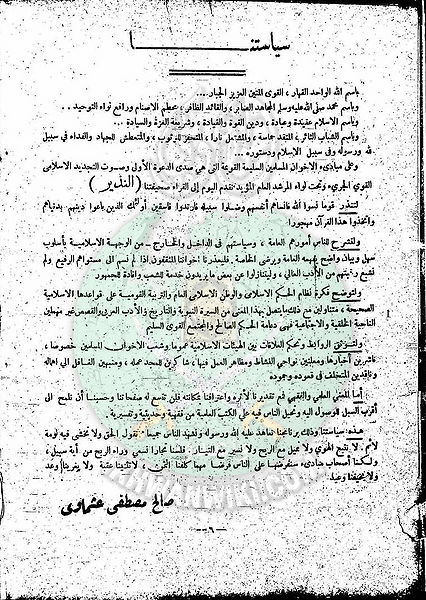 سياستنا
باسم الله الواحد القهار ، القوى المتين العزيز الجبار....
وباسم محمد صلى الله عليه وسلم المجاهد الصابر ، والقائد الظافر ، محطم الاصنام ورافع لواء التوحيد ..
وباسم الاسلام عقيدة وعبادة ، ودين القوة والقيادة ، وشريعة العزة والسيادة ..
وباسم الشباب الثائر ، المتقد حماسة ، والمشتعل نارا ، المتحفز للوثوب ، والمتعطش للجهاد والفداء في سبيل
الله ورسوله وفى سبيل الاسلام ودستوره ..
وعلى مبادىء الاخوان المسلمين السليمة القويمة التي هي صدى الدعوة الأولى وصوت التجديد الاسلامى
القوى الجرىء وتحت لواء المرشد العام المؤيد نتقدم اليوم إلى القراء بصحيفتنا ( النذير )
لتنذر قوما نسوا الله فأنساهم أنفسهم وضلوا سبيله فارتدوا فاسقين أولئك الذين باعوا دينهم بدنياهم
واتخذوا هذا القرآن مهجورا
ولتشرح للناس أمورهم العامة ، وسياستهم في الداخل والخارج — من الوجهة الاسلامية بأسلوب
سهل وبيان واضح يفهمه العامة ويرضى الخاصة. فليعذرنا اخواننا المثقفون اذا لم نسم الى مستواهم الرفيع ولم
نشبع رغبتهم من الأدب العالى ، وليتنازلوا عن بعض ما يريدون خدمة للشعب وافادة للجمهور
ولتوضح فكرة نظام الحكم الاسلامى والوطن الاسلامى العام والتربية القومية على قواعدها الاسلامية
الصحيحة ، متناولين مع ذلك ما يتصل بهذا المعنى من السيرة النبوية والتاريخ والأدب العربي والقصص غير مهملين
الناحية الخلقية والاجتماعية فهى دعامة الحكم الصالح والمجتمع القوى السليم
ولتوثق الروابط وتحكم العلاقات بين الهيئات الاسلامية عموما وشعب الاخوان المسلمين خصوصا ،
ناشرين أخبارها ومعلنين نواحي النشاط ومظاهر العمل فيها ، شاكرين للمجد عمله ، ومنبهين الغافل الى اهماله
وناقدين المتخلف في قعوده وجموده
أما المعنى العلمى والفقهى فمع تقديرنا لأثره واعترافنا بمكانته فلن تتسع له صفحاتنا وحسبنا أن نلمح الى
أقرب السبل للوصول اليه ونحيل الناس فيه على الكتب العلمية من فقهية وحديثية وتفسيرية .
هذه سياستنا وذلك برنامجنا نعاهد عليه الله ورسوله ونشهد الناس جميعا . نقول الحق ولا نخشى فيه لومة
لائم . لا نتبع الهوى ولا نميل مع الريح ولا نسير مع التيار . فلسنا تجارا نسعى وراء الربح من أية سبيل ،
ولكننا أصحاب مبادىء سنفرضها على الناس فرضا مهما كلفنا الثمن . لا تثنينا عقبة ولا يغرينا وعد
ولا يخيفنا وعيد
صالح مصطفى عشماوى
— ٦ —